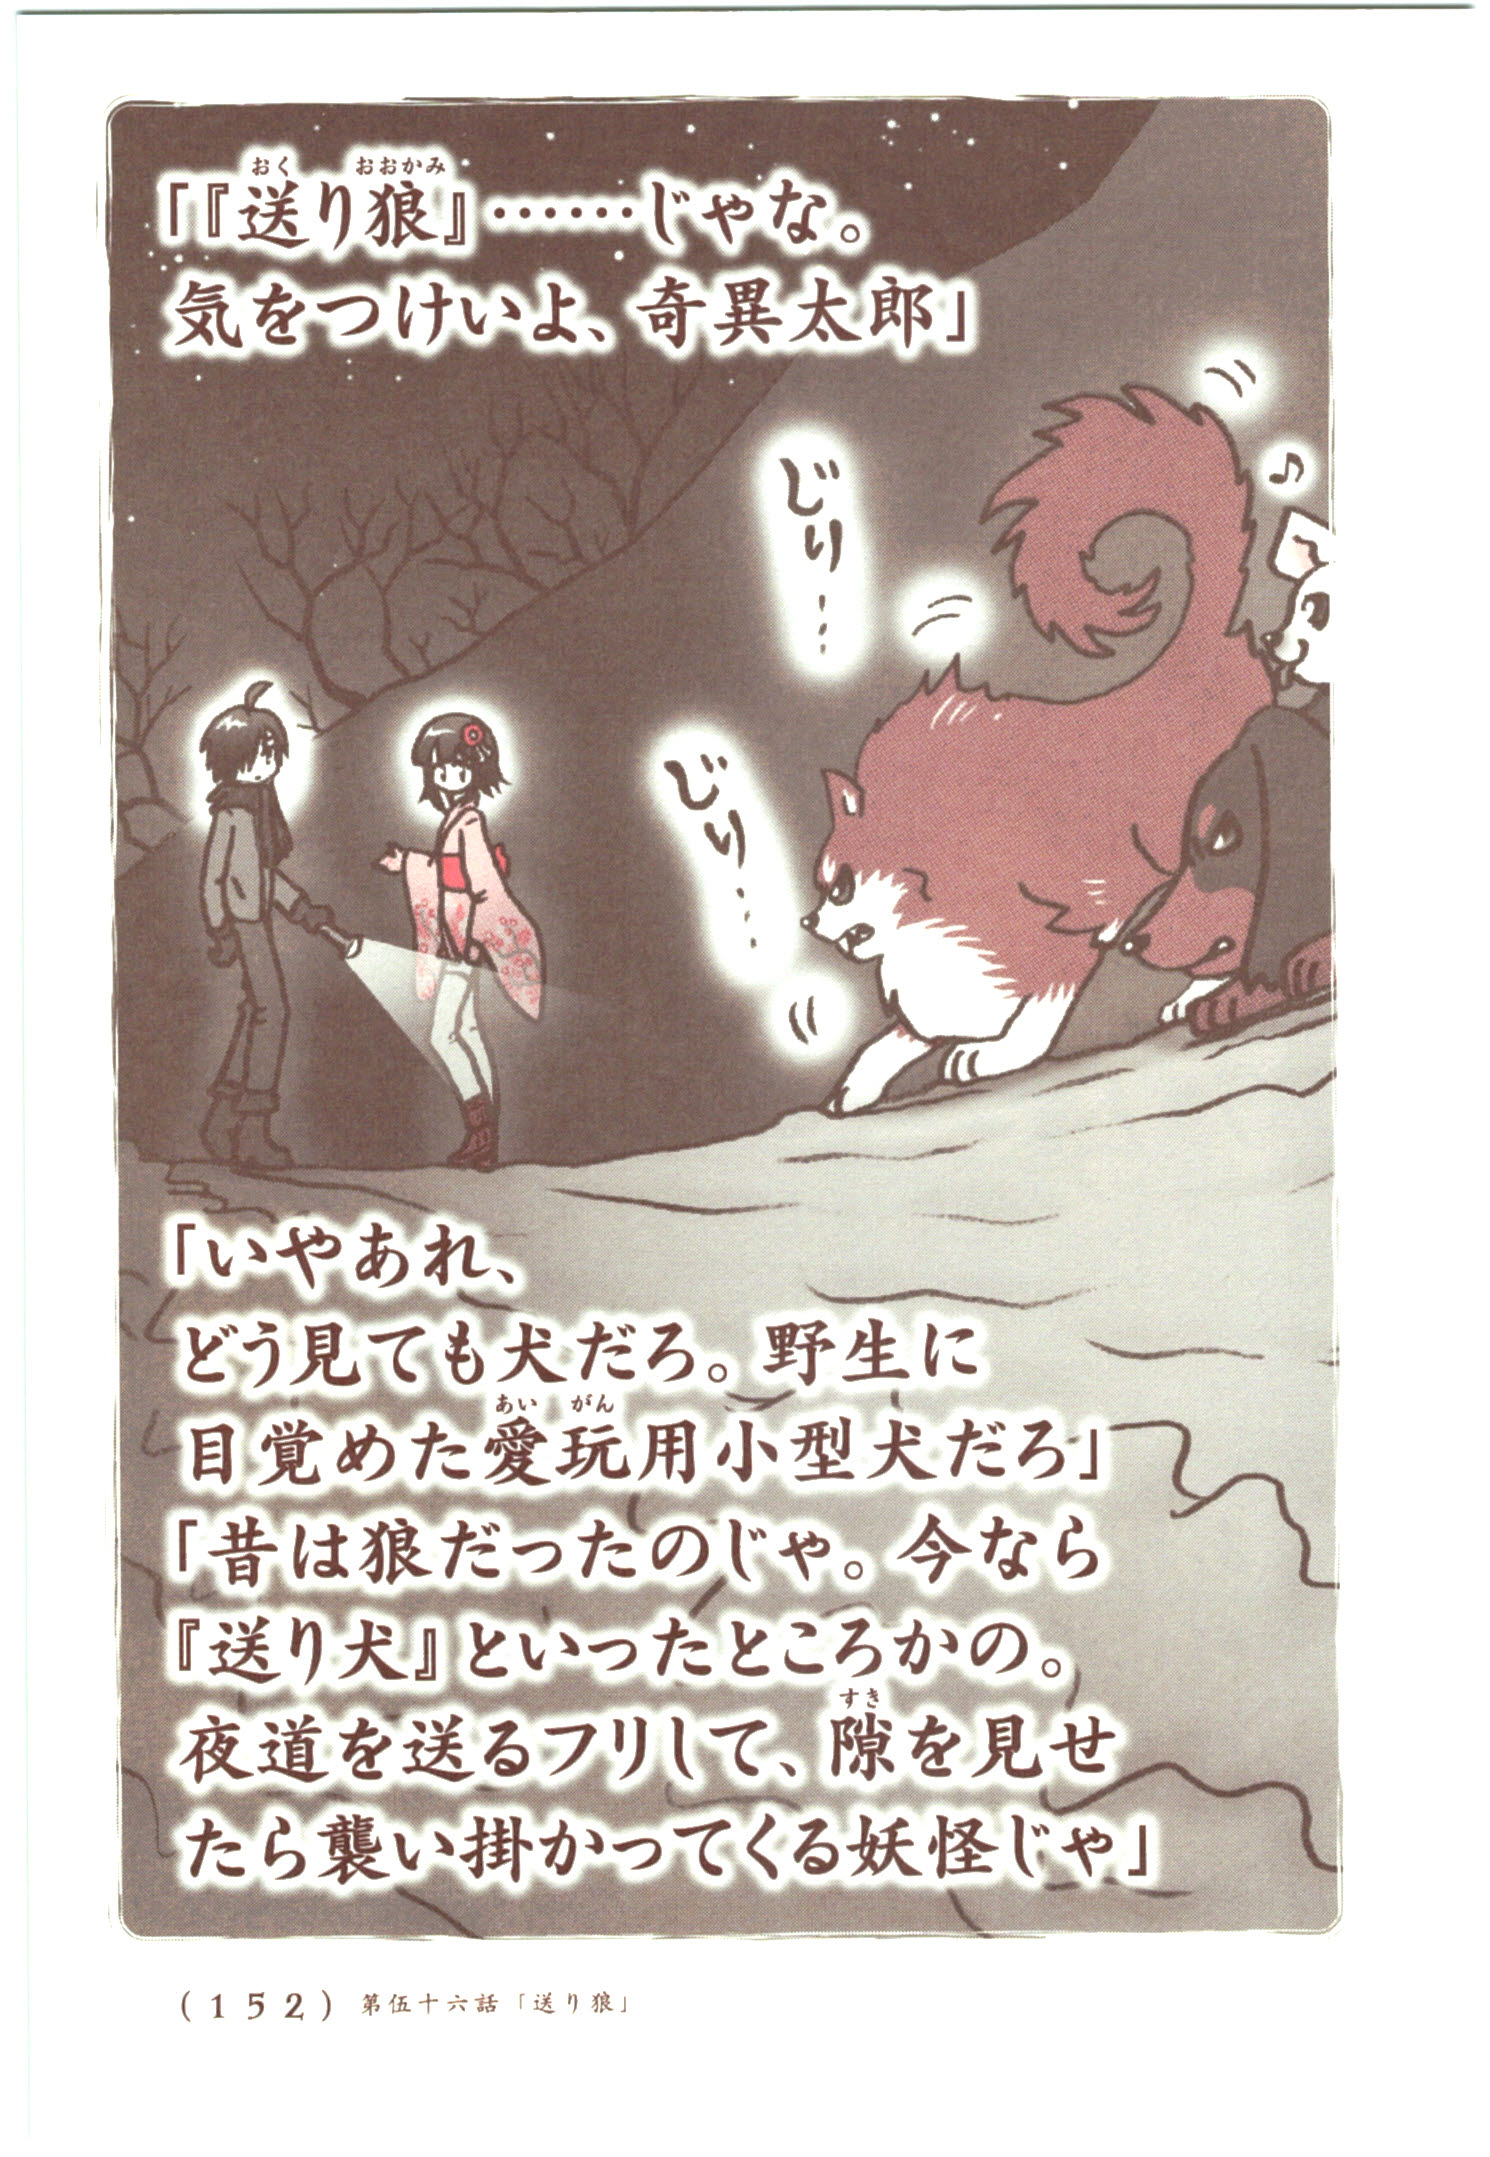 「『送り狼』……じゃな。
気をつけいよ、奇異太郎」
じり…
じり…
「いやあれ、
どう見ても犬だろ。野生に
目覚めた愛玩用小型犬だろ」
「昔は狼だったのじゃ。今なら
『送り犬』といったところかの。
夜道を送るフリして、隙を見せ
たら襲い掛かってくる妖怪じゃ」
(152) 第伍十六話「送り狼」